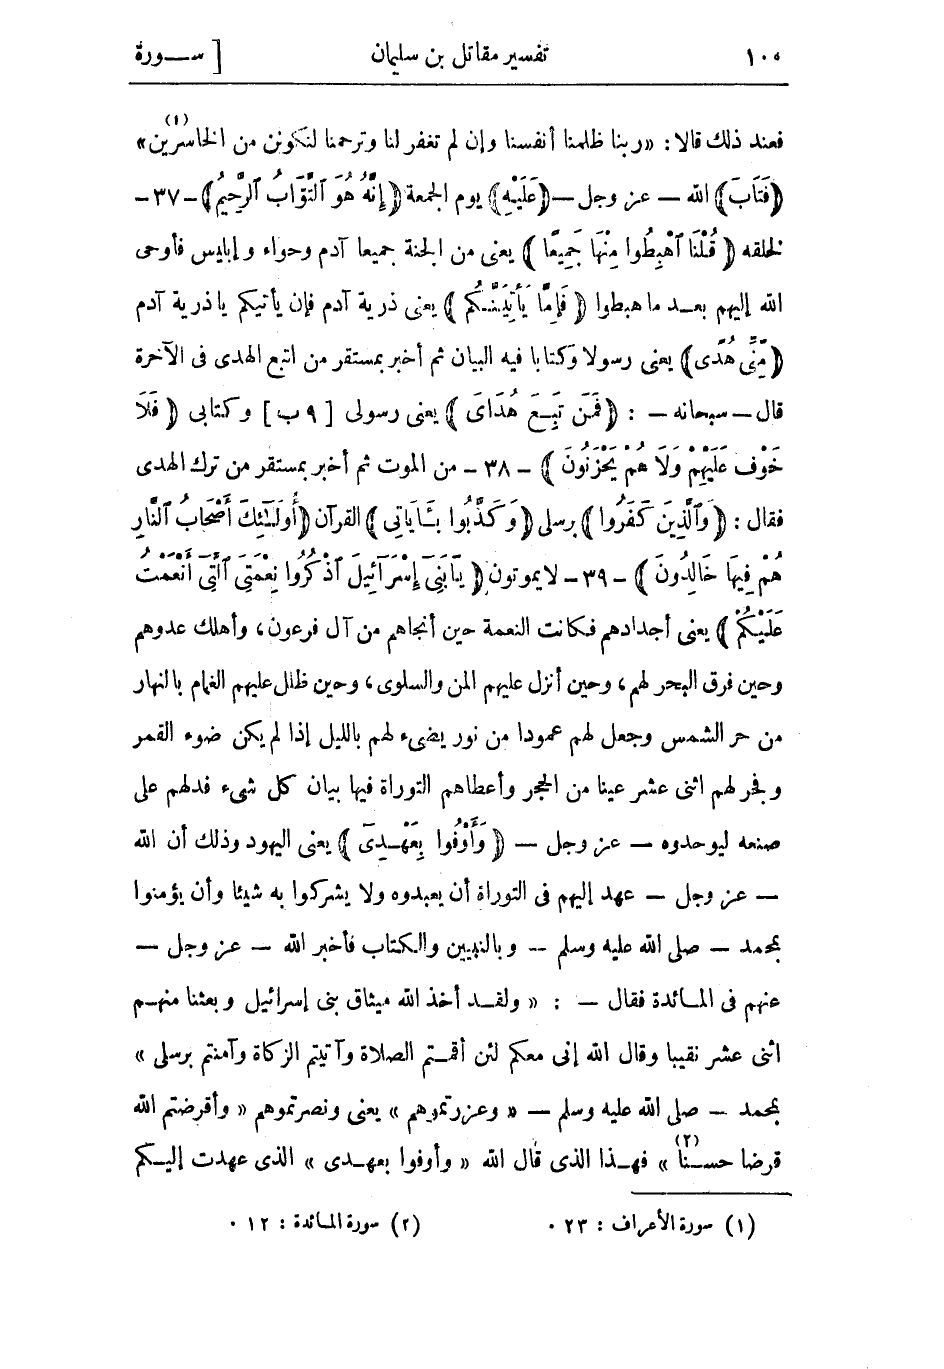 ١٠٠ تفسير مقاتل بن سليمان [ ســورة
فعند ذلك قالا: «ربنا ظلمنا أنفسنا وإن لم تغفر لنا وترحمنا لنكونن من الخاسرين»(١)
﴿فَتَابَ﴾ الله — عز وجل — ﴿عَلَيْهِ﴾ يوم الجمعة ﴿إِنَّهُ هُوَ ٱلتَّوَّابُ ٱلرَّحِيمُ﴾ - ٣٧ -
لخلقه ﴿ قُلْنَا ٱهْبِطُوا مِنْهَا جَمِيعًا ﴾ يعنى من الجنة جميعا آدم وحواء وإبليس فأوحى
الله إليهم بعـد ما هبطوا ﴿ فَإِمَّا يَأْتِيَنَّكُم ﴾ يعنى ذرية آدم فإن يأتيكم يا ذرية آدم
﴿مِّنِّى هُدًى﴾ يعنى رسولا وكتابا فيه البيان ثم أخبر بمستقر من اتبع الهدى فى الآخرة
قال — سبحانه — : ﴿ فَمَن تَبِـعَ هُدَاىَ ﴾ يعنى رسولى [ ٩ ب ] وكتابى ﴿ فَلَا
خَوْفٌ عَلَيْهِمْ وَلَا هُمْ يَحْزَنُونَ ﴾ - ٣٨ - من الموت ثم أخبر بمستقر من ترك الهدى
فقال : ﴿ وَٱلَّذِينَ كَفَرُوا ﴾ برسلى ﴿ وَكَذَّبُوا بِـَٔايَاتِى ﴾ القرآن ﴿أُولَـٰٓئِكَ أَصْحَابُ ٱلنَّارِ
هُمْ فِيهَا خَالِدُونَ ﴾ - ٣٩ - لا يموتون ﴿ يَـٰبَنِىٓ إِسْرَآئِيلَ ٱذْكُرُوا نِعْمَتِىَ ٱلَّتِىٓ أَنْعَمْتُ
عَلَيْكُمْ ﴾ يعنى أجدادهم فكانت النعمة حين أنجاهم من آل فرعون، وأهلك عدوهم
وحين فرق البحر لهم، وحين أنزل عليهم المن والسلوى، وحين ظلل عليهم الغمام بالنهار
من حر الشمس وجعل لهم عمودا من نور يضىء لهم بالليل إذا لم يكن ضوء القمر
وفجر لهم اثنى عشر عينا من الحجر وأعطاهم التوراة فيها بيان كل شىء فدلهم على
صنعه ليوحدوه — عز وجل — ﴿ وَأَوْفُوا بِعَهْـدِىٓ ﴾ يعنى اليهود وذلك أن الله
— عز وجل — عهد إليهم فى التوراة أن يعبدوه ولا يشركوا به شيئا وأن يؤمنوا
بمحمد — صلى الله عليه وسلم — وبالنبيين والكتاب فأخبر الله — عز وجل —
عنهم فى المـائدة فقال — : « ولقـد أخذ الله ميثاق بنى إسرائيل وبعثنا منهـم
اثنى عشر نقيبا وقال الله إنى معكم لئن أقمـتم الصلاة وآتيتم الزكاة وآمنتم برسلى »
بمحمد — صلى الله عليه وسلم — « وعزرتموهم » يعنى ونصرتموهم « وأقرضتم الله
قرضا حسـنا(٢) » فهـذا الذى قال الله « وأوفوا بعهـدى » الذى عهدت إليـكم
(١) سورة الأعراف : ٢٣ . (٢) سورة المـائدة : ١٢ .